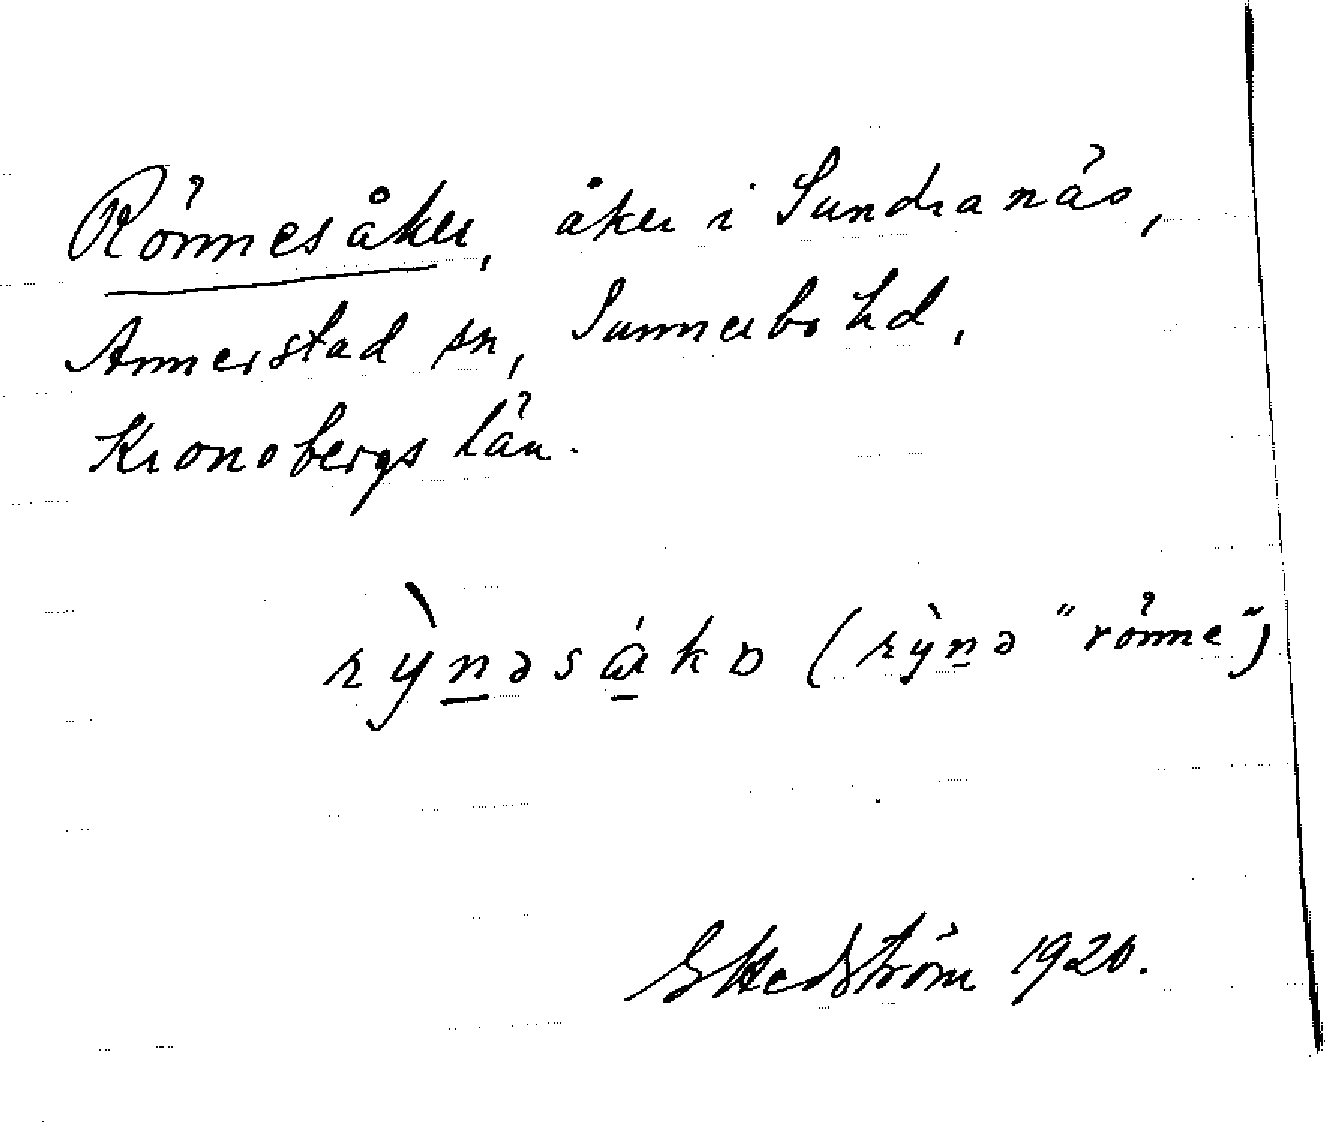 Rönnesåker, åker i Sundranäs,
Annerstad sn, Sunnerbo hd,
Kronobergs län.
rỳn̲əsá̲kɒ (rỳn̲ə "rönne")
G Hedström 1920.